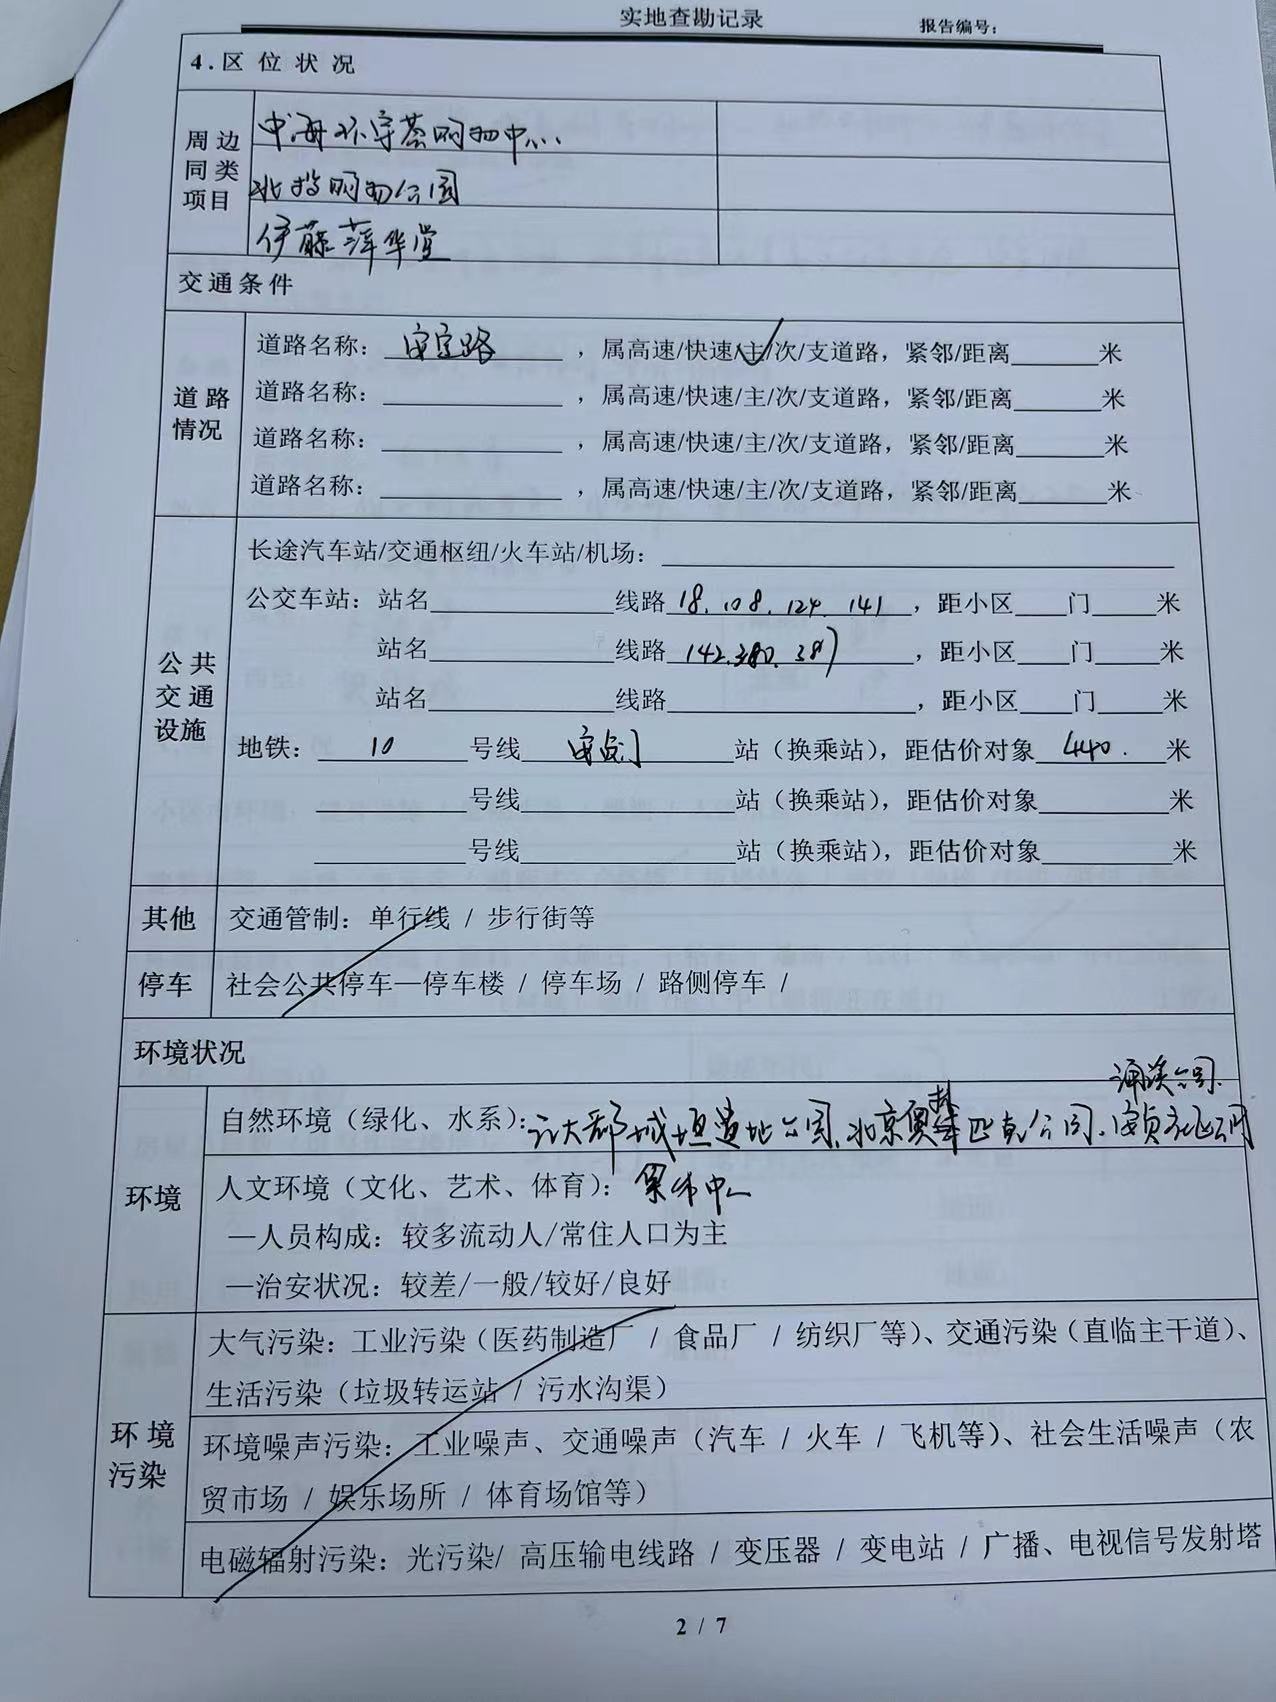 实地查勘记录
报告编号：
4.区 位 状 况
周 边
同 类
项目
中海环宇荟购物中心
北投购物公园
伊藤洋华堂
交通条件
道 路
情况
道路名称： 安定路 ，属高速/快速/主/次/支道路，紧邻/距离______米
道路名称：____________ ，属高速/快速/主/次/支道路，紧邻/距离______米
道路名称：____________ ，属高速/快速/主/次/支道路，紧邻/距离______米
道路名称：____________ ，属高速/快速/主/次/支道路，紧邻/距离______米
公 共
交 通
设施
长途汽车站/交通枢纽/火车站/机场：____________
公交车站：站名____________线路 18. 108. 124. 141 ，距小区____门____米
站名____________线路 142. 380. 387 ，距小区____门____米
站名____________线路____________，距小区____门____米
地铁： 10 号线 安贞门 站（换乘站），距估价对象 440. 米
____________号线____________站（换乘站），距估价对象________米
____________号线____________站（换乘站），距估价对象________米
其他
交通管制：单行线 / 步行街等
停车
社会公共停车—停车楼 / 停车场 / 路侧停车 /
环境状况
环境
涌溪公园.
自然环境（绿化、水系）：元大都城垣遗址公园. 北京奥林匹克公园. 安贞 公园
人文环境（文化、艺术、体育）： 中心
—人员构成：较多流动人/常住人口为主
—治安状况：较差/一般/较好/良好
环 境
污染
大气污染：工业污染（医药制造厂 / 食品厂 / 纺织厂等）、交通污染（直临主干道）、
生活污染（垃圾转运站 / 污水沟渠）
环境噪声污染：工业噪声、交通噪声（汽车 / 火车 / 飞机等）、社会生活噪声（农
贸市场 / 娱乐场所 / 体育场馆等）
电磁辐射污染：光污染/ 高压输电线路 / 变压器 / 变电站 / 广播、电视信号发射塔
2 / 7